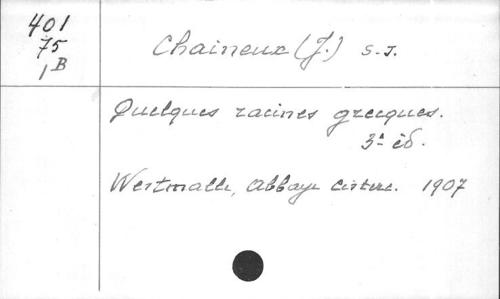 401
75
1B
Chaineux (J.) S.J.
Quelques racines grecques.
3ª éd.
Westmalle, Abbaye Cisterc. 1907